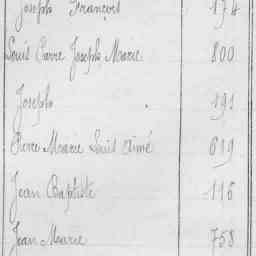 Joseph François 174
Louis Pierre Joseph Marie 800
Joseph 191
Pierre Marie Louis Aimé 619
Jean Baptiste 116
Jean Marie 758